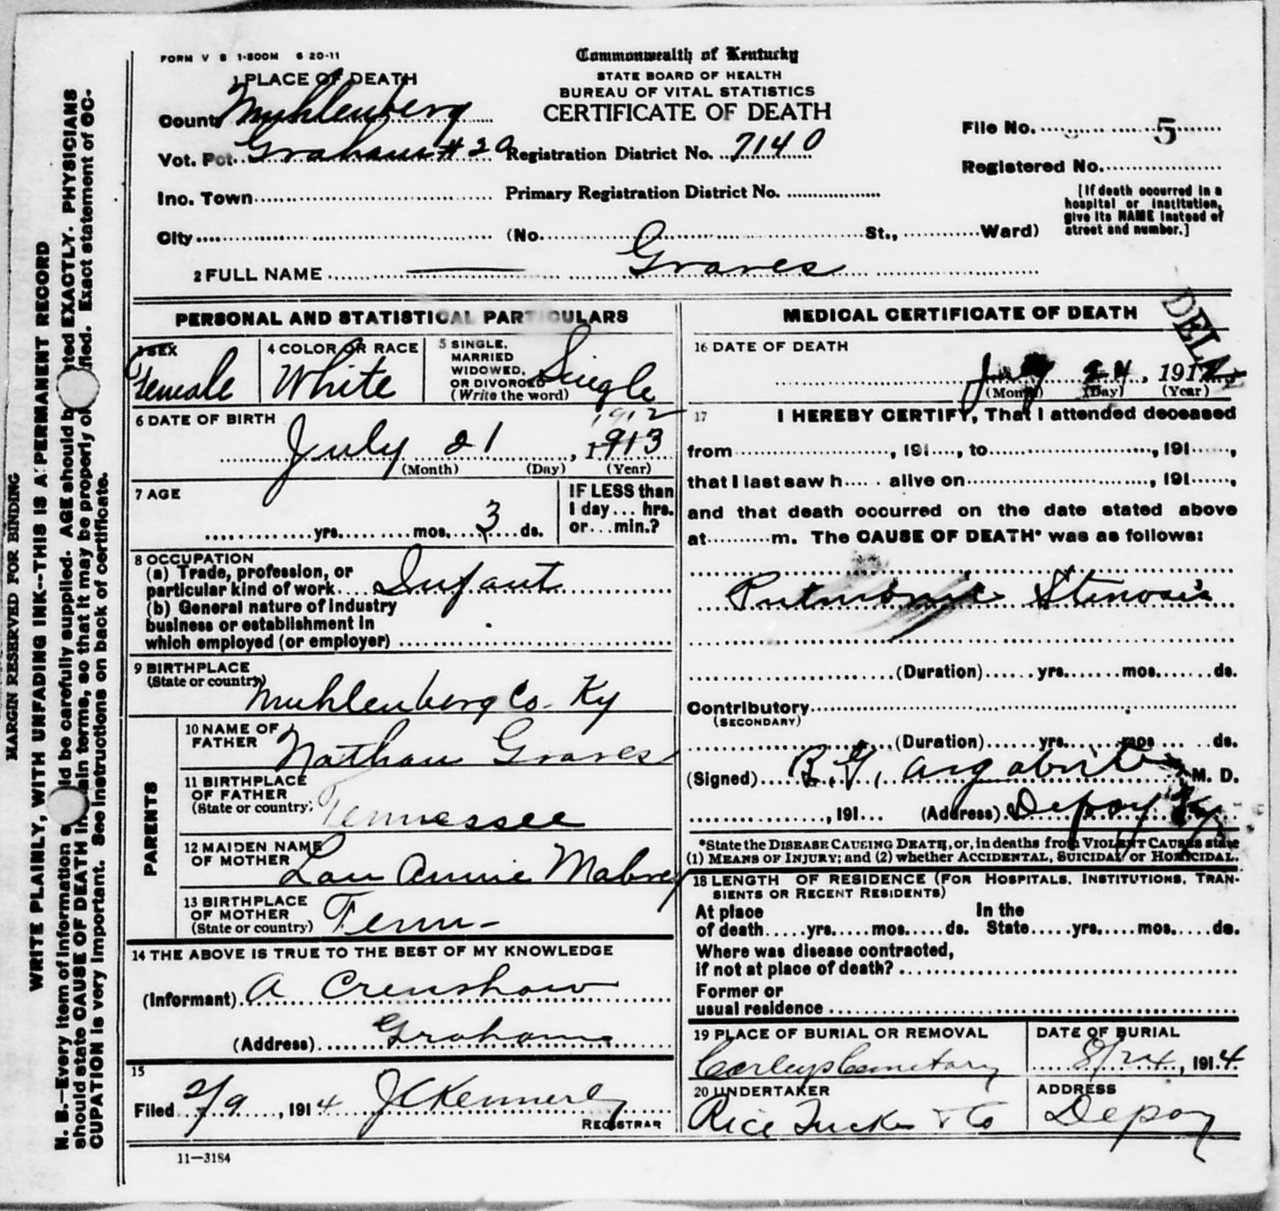 FORM V S 1-500M 6 20-11
Commonwealth of Kentucky
STATE BOARD OF HEALTH
BUREAU OF VITAL STATISTICS
CERTIFICATE OF DEATH
1 PLACE OF DEATH
County Muhlenberg
Vot. Pct. Graham #20 Registration District No. 7140
File No. 5
Registered No.
Inc. Town Primary Registration District No.
[If death occurred in a
hospital or institution,
give its NAME instead of
street and number.]
City (No. St., Ward)
2 FULL NAME Graves
PERSONAL AND STATISTICAL PARTICULARS
3 SEX
Female
4 COLOR OR RACE
White
5 SINGLE,
MARRIED
WIDOWED,
OR DIVORCED
(Write the word)
Single
6 DATE OF BIRTH
1912
July 21, 1913
(Month) (Day) (Year)
7 AGE
yrs. mos. 3 ds.
IF LESS than
1 day... hrs.
or... min.?
8 OCCUPATION
(a) Trade, profession, or
particular kind of work Infant
(b) General nature of industry
business or establishment in
which employed (or employer)
9 BIRTHPLACE
(State or country)
Muhlenberg Co. Ky
PARENTS
10 NAME OF
FATHER
Nathan Graves
11 BIRTHPLACE
OF FATHER
(State or country)
Tennessee
12 MAIDEN NAME
OF MOTHER
Lou Annie Mabrey
13 BIRTHPLACE
OF MOTHER
(State or country)
Tenn-
14 THE ABOVE IS TRUE TO THE BEST OF MY KNOWLEDGE
(Informant) A Crenshaw
(Address) Graham
15
Filed 2/9, 1914 J C Kennerly
REGISTRAR
11-3184
MEDICAL CERTIFICATE OF DEATH
DELA
16 DATE OF DEATH
July 24, 191
(Month) (Day) (Year)
17 I HEREBY CERTIFY, That I attended deceased
from , 191 , to , 191 ,
that I last saw h alive on , 191 ,
and that death occurred on the date stated above
at m. The CAUSE OF DEATH* was as follows:
Pulmonic Stenosis
(Duration) yrs. mos. ds.
Contributory
(SECONDARY)
(Duration) yrs. mos. ds.
(Signed) B. G. Argabrite, M. D.
, 191 (Address) Depoy Ky
*State the DISEASE CAUSING DEATH, or, in deaths from VIOLENT CAUSES state
(1) MEANS OF INJURY; and (2) whether ACCIDENTAL, SUICIDAL or HOMICIDAL.
18 LENGTH OF RESIDENCE (FOR HOSPITALS, INSTITUTIONS, TRAN-
SIENTS OR RECENT RESIDENTS)
At place In the
of death yrs. mos. ds. State yrs. mos. ds.
Where was disease contracted,
if not at place of death?
Former or
usual residence
19 PLACE OF BURIAL OR REMOVAL
Cemetary
DATE OF BURIAL
8/24, 1914
20 UNDERTAKER
Rice Tucker & Co
ADDRESS
Depoy
MARGIN RESERVED FOR BINDING
WRITE PLAINLY, WITH UNFADING INK--THIS IS A PERMANENT RECORD
N. B.--Every item of information should be carefully supplied. AGE should be stated EXACTLY. PHYSICIANS
should state CAUSE OF DEATH in plain terms, so that it may be properly classified. Exact statement of OC-
CUPATION is very important. See instructions on back of certificate.